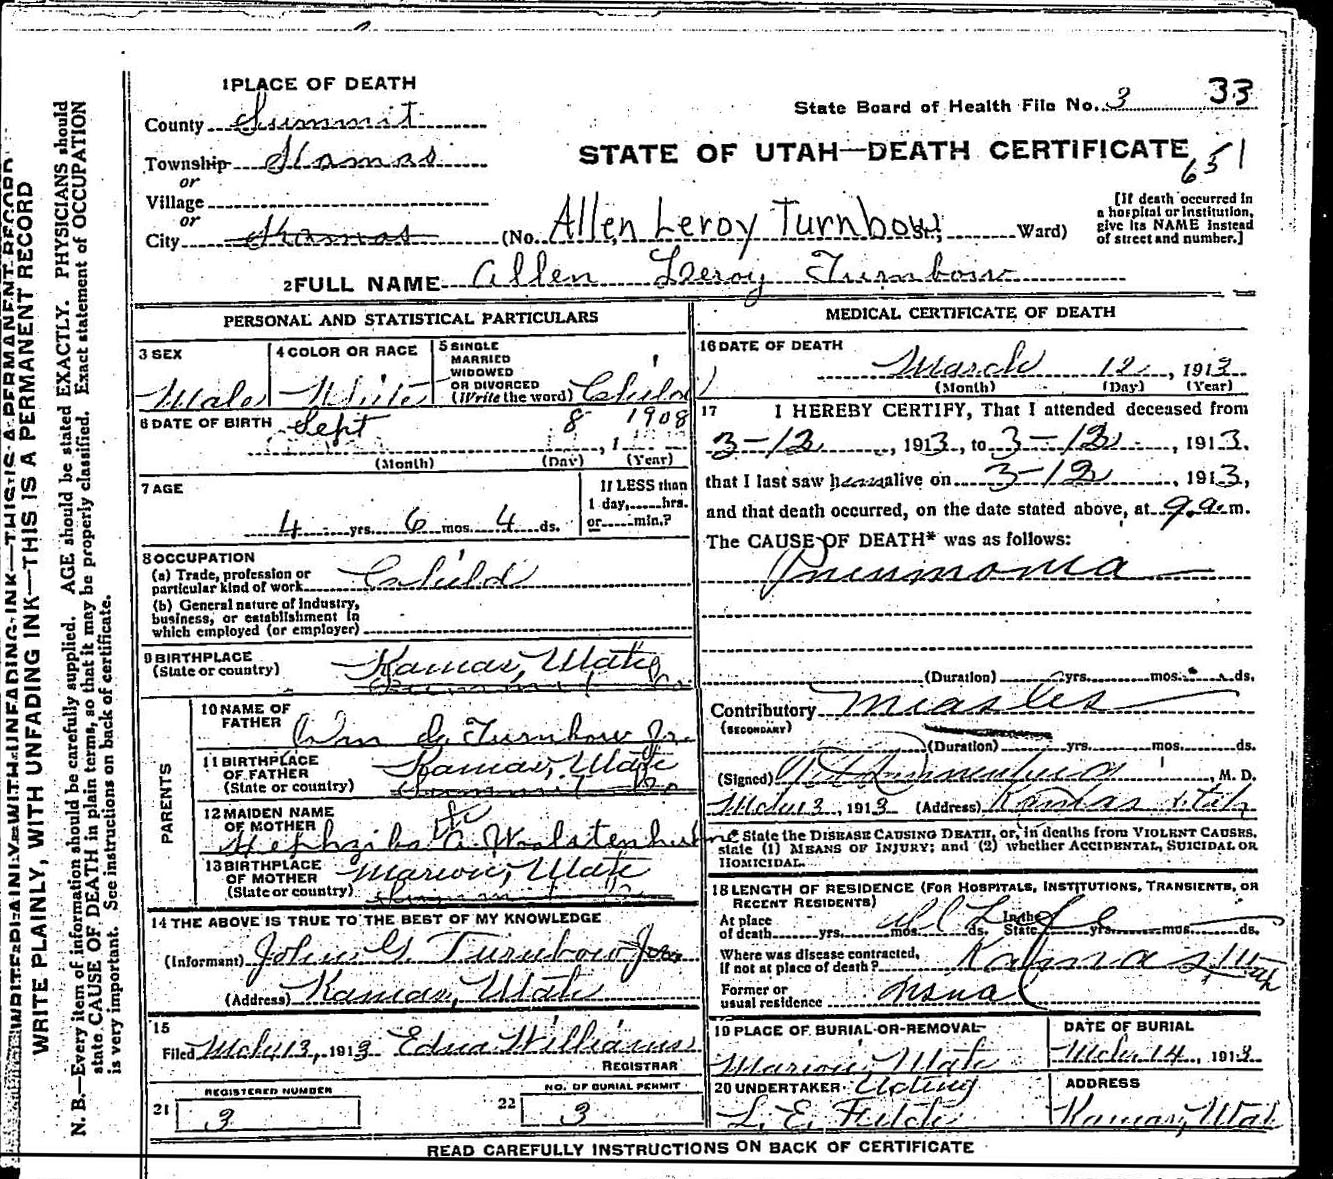 1 PLACE OF DEATH
County Summit
Township Kamas
or
Village
or
City Kamas
State Board of Health File No. 3 33
STATE OF UTAH—DEATH CERTIFICATE
651
(No. Allen Leroy Turnbow St; Ward)
[If death occurred in
a hospital or institution,
give its NAME instead
of street and number.]
2 FULL NAME Allen Leroy Turnbow
PERSONAL AND STATISTICAL PARTICULARS
3 SEX
Male
4 COLOR OR RACE
White
5 SINGLE
MARRIED
WIDOWED
OR DIVORCED
(Write the word) Child
6 DATE OF BIRTH Sept 8 1908
, 1
(Month) (Day) (Year)
7 AGE
4 yrs. 6 mos. 4 ds.
If LESS than
1 day, hrs.
or min.?
8 OCCUPATION
(a) Trade, profession or
particular kind of work Child
(b) General nature of Industry,
business, or establishment in
which employed (or employer)
9 BIRTHPLACE
(State or country) Kamas, Utah
Summit Co
PARENTS
10 NAME OF
FATHER
Wm Turnbow Jr.
11 BIRTHPLACE
OF FATHER
(State or country)
Kamas, Utah
Summit Co
12 MAIDEN NAME
OF MOTHER
Hephziba A. Woolstenhulme
13 BIRTHPLACE
OF MOTHER
(State or country)
Marion, Utah
Summit Co
14 THE ABOVE IS TRUE TO THE BEST OF MY KNOWLEDGE
(Informant) John G. Turnbow
(Address) Kamas, Utah
15
Filed Mch 13, 1913 Edna Williams
REGISTRAR
REGISTERED NUMBER
21 3
NO. OF BURIAL PERMIT
22 3
MEDICAL CERTIFICATE OF DEATH
16 DATE OF DEATH
March 12, 1913
(Month) (Day) (Year)
17 I HEREBY CERTIFY, That I attended deceased from
3-12, 1913, to 3-12, 1913.
that I last saw him alive on 3-12, 1913,
and that death occurred, on the date stated above, at 9 a. m.
The CAUSE OF DEATH* was as follows:
Pneumonia
(Duration) yrs. mos. ds.
Contributory Measles
(SECONDARY)
(Duration) yrs. mos. ds.
(Signed) , M. D.
Mch 13, 1913 (Address) Kamas Utah
State the DISEASE CAUSING DEATH, or, in deaths from VIOLENT CAUSES,
state (1) MEANS OF INJURY; and (2) whether ACCIDENTAL, SUICIDAL OR
HOMICIDAL.
18 LENGTH OF RESIDENCE (FOR HOSPITALS, INSTITUTIONS, TRANSIENTS, OR
RECENT RESIDENTS)
At place
of death yrs. mos. ds. In the
State yrs. mos. ds.
All Life
Where was disease contracted,
if not at place of death? Kamas Utah
Former or
usual residence usual
19 PLACE OF BURIAL OR REMOVAL
Marion, Utah
DATE OF BURIAL
Mch 14, 1913
20 UNDERTAKER Acting
L. E. Fitch
ADDRESS
Kamas, Utah
READ CAREFULLY INSTRUCTIONS ON BACK OF CERTIFICATE
WRITE PLAINLY, WITH UNFADING INK—THIS IS A PERMANENT RECORD
WRITE PLAINLY, WITH UNFADING INK—THIS IS A PERMANENT RECORD
N. B.—Every item of information should be carefully supplied. AGE should be stated EXACTLY. PHYSICIANS should
state CAUSE OF DEATH in plain terms, so that it may be properly classified. Exact statement of OCCUPATION
is very important. See instructions on back of certificate.